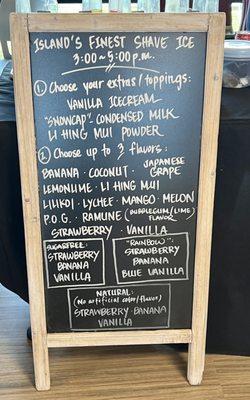 ISLAND'S FINEST SHAVE ICE
3:00~5:00 p.m.
① Choose your extras/toppings:
VANILLA ICECREAM
"SNOWCAP" CONDENSED MILK
LI HING MUI POWDER
② Choose up to 3 flavors:
BANANA · COCONUT · JAPANESE GRAPE
LEMON LIME · LI HING MUI
LILIKOI · LYCHEE · MANGO · MELON
P.O.G. · RAMUNE (BUBBLEGUM/LIME) FLAVOR
STRAWBERRY · VANILLA
SUGARFREE:
STRAWBERRY
BANANA
VANILLA
"RAINBOW":
STRAWBERRY
BANANA
BLUE VANILLA
NATURAL:
(No artificial color/flavor)
STRAWBERRY · BANANA
VANILLA